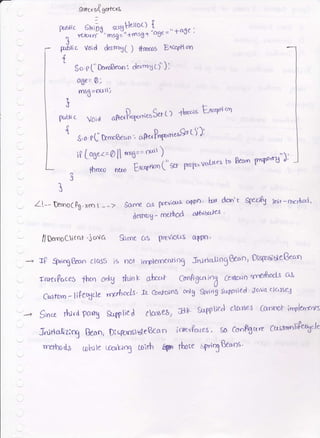 :
public String sayHello() {
return "msg="+msg+"age="+age;
}
public void destroy() throws Exception
{
S.o.p("DemoBean: destroy()");
age=0;
msg=null;
}
public void afterPropertiesSet() throws Exception
{
S.o.p("DemoBean: afterPropertiesSet()");
if(age<=0||msg==null)
throw new Exception("set proper values to Bean property");
}
}
<!-- DemoCfg.xml --> same as previous appn. but don't specify init-method,
destroy-method attributes.
//DemoClient.java Same as previous appn.
→ If SpringBean class is not implementing InitializingBean, DisposableBean
Interfaces then only think about Configuring certain methods as
Custom-lifecycle methods. It contains only Spring supplied Java classes
→ Since third party Supplied classes, Jdk supplied classes cannot implements
Initializing Bean, DisposableBean interfaces. so configure custom lifecycle
methods while working with those spring Beans.